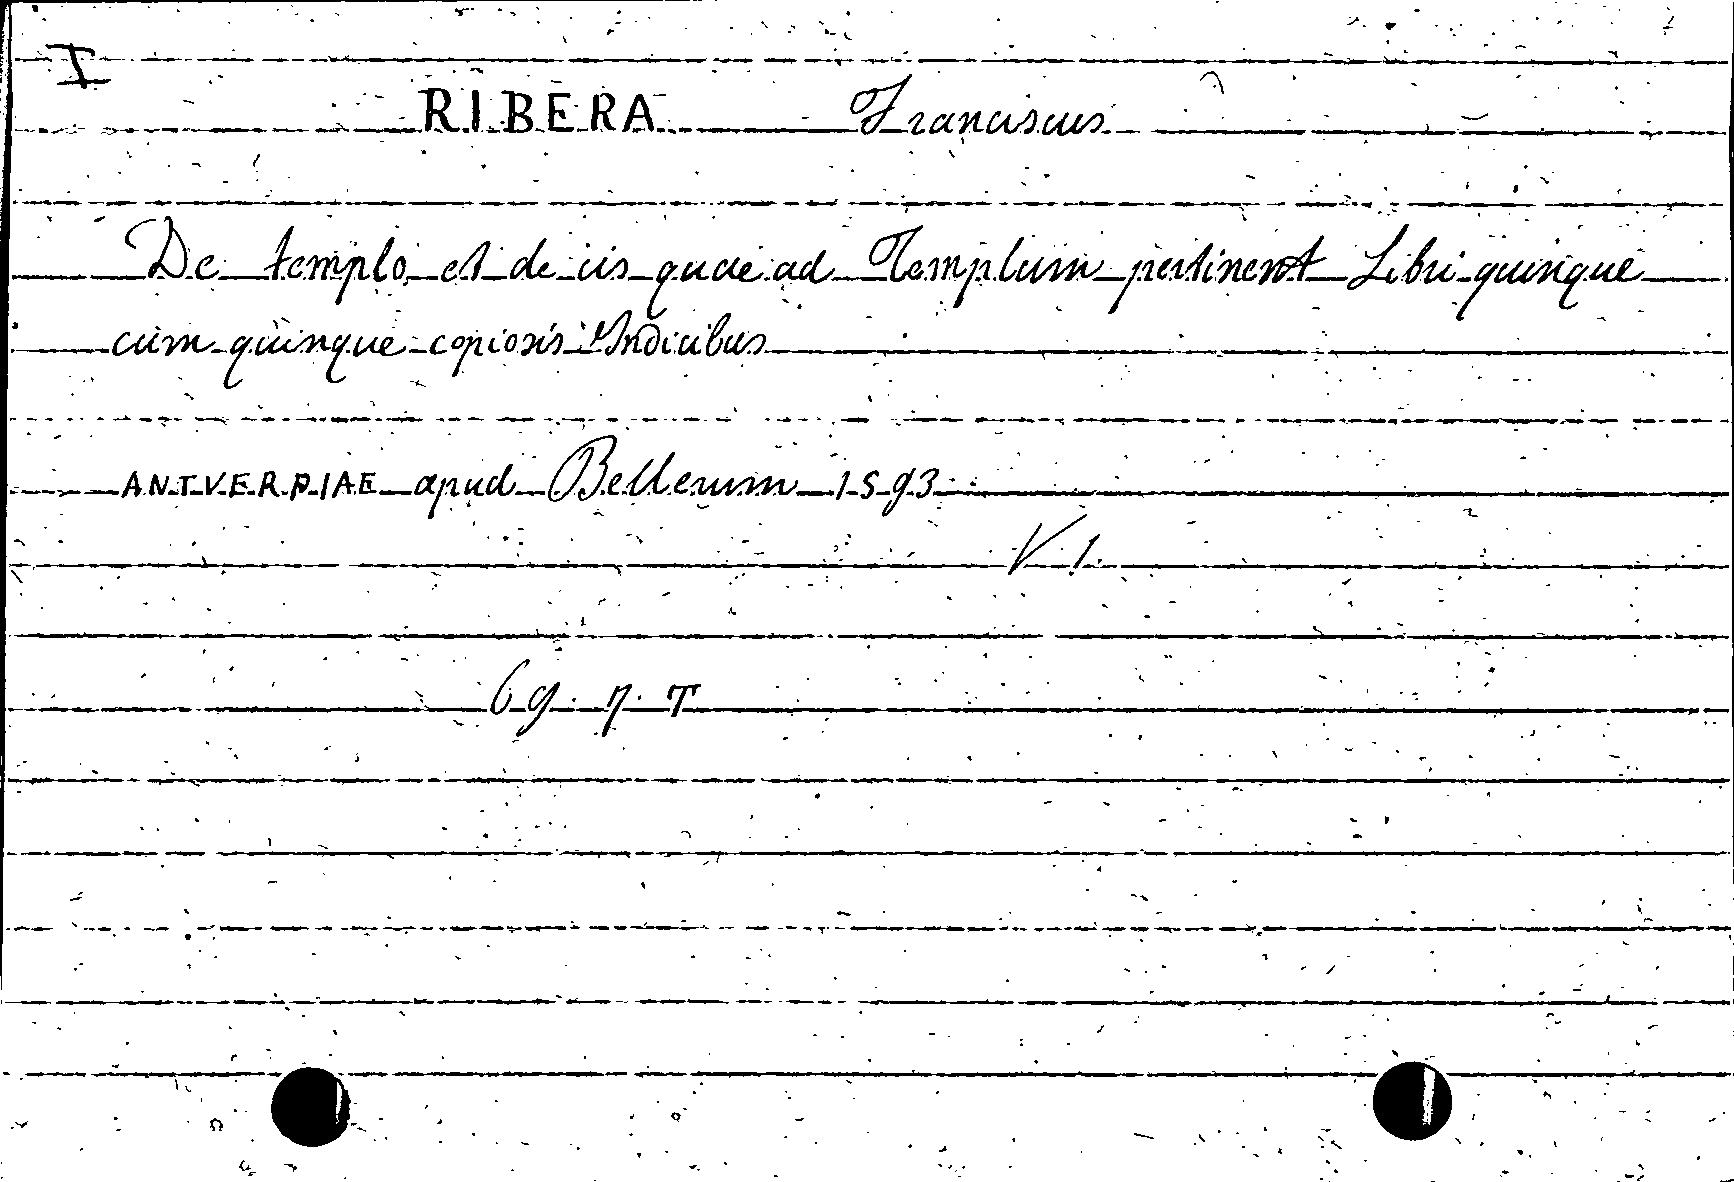 I
RIBERA Franciscus
De templo, et de iis quae ad Templum pertinent Libri quinque
cum quinque copiosis Indicibus
ANTVERPIAE apud Bellerum 1593
V. 1.
69. 7. T